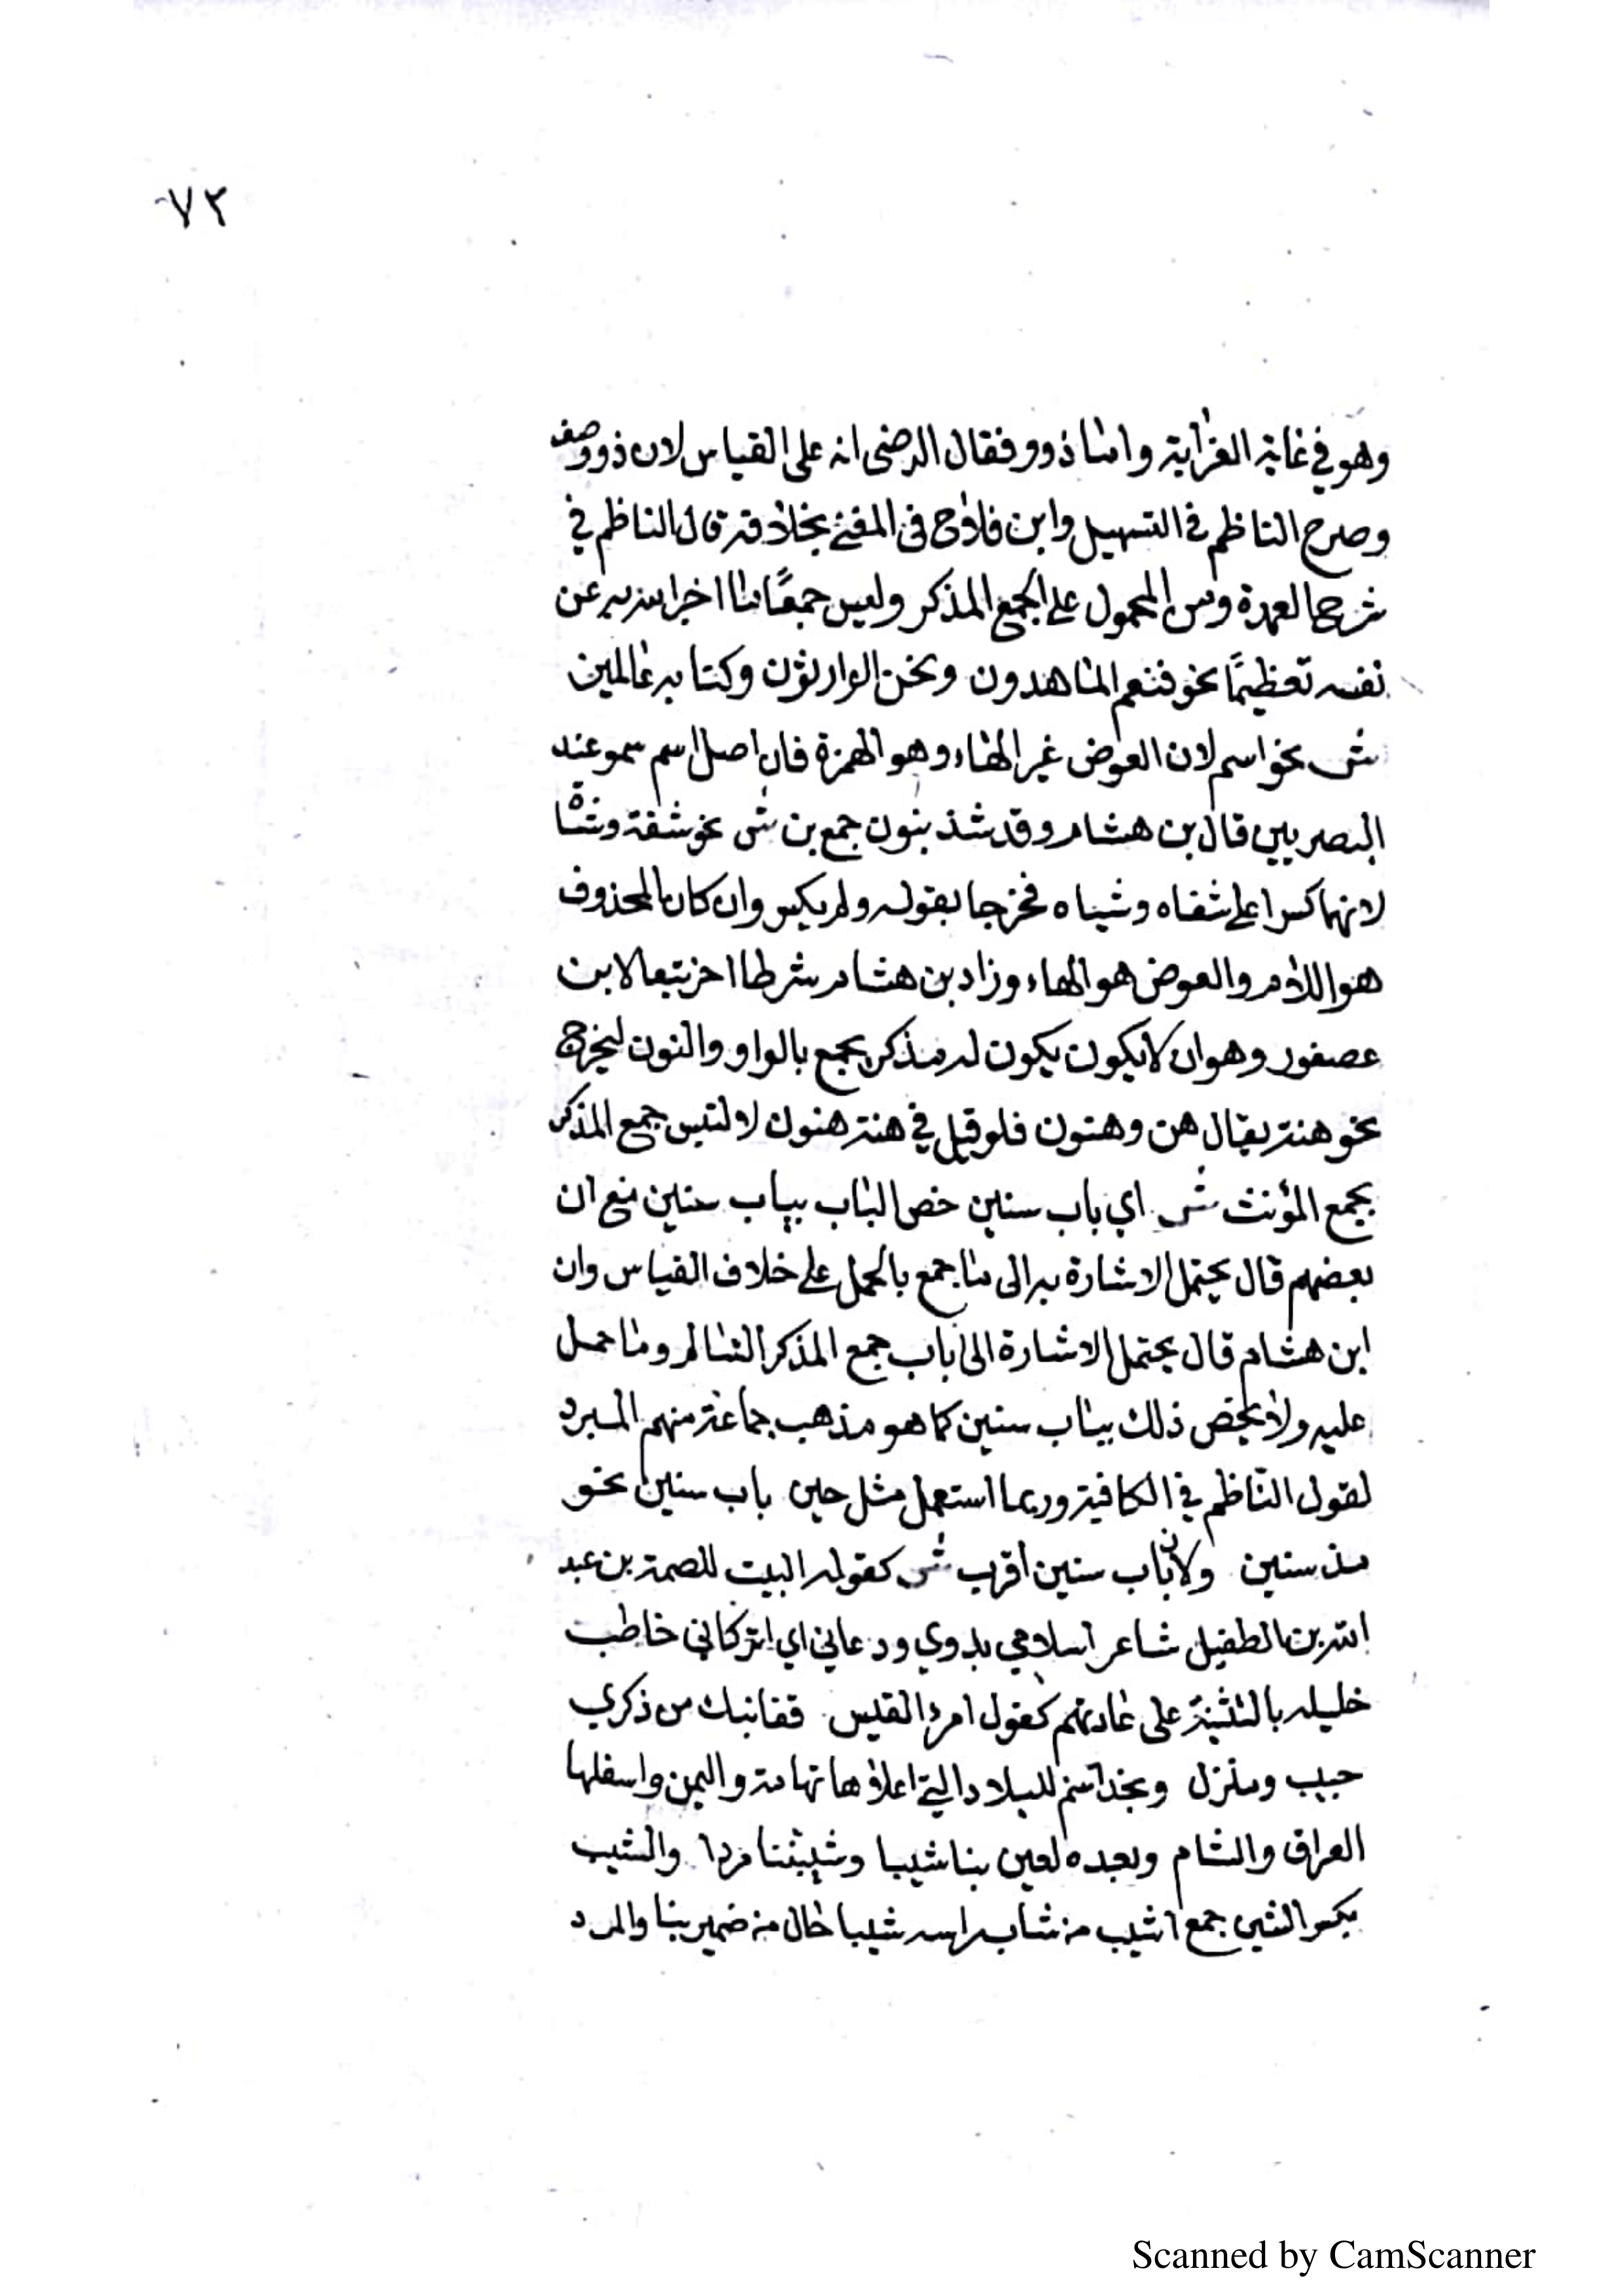 ٧٢
وهو في غاية الغرابة واما ذوو فقال الرضى انه على القياس لان ذو وصف
وصرح الناظم في التسهيل وابن فلاح في المغني بخلافه قال الناظم في
شرح العمدة ومن المحمول على الجمع المذكر وليس جمعًا ما اخبر الله به عن
نفسه تعظيمًا نحو فنعم الماهدون ونحن الوارثون وكنا به عالمين
ش نحو اسم لان العوض غير الهاء وهو الهمزة فان اصل اسم سمو عند
البصريين قال بن هشام وقد شذ بنون جمع بن ش نحو شفة وشاة
لانهما كسرا على شفاه وشياه فخرجا بقوله ولم يكسر وان كان المحذوف
هو اللام والعوض هو الهاء وزاد بن هشام شرطا اخر تبعا لابن
عصفور وهو ان لا يكون يكون له مذكر يجمع بالواو والنون ليخرج
نحو هنة يقال هن وهنون فلو قيل في هنة هنون لالتبس جمع المذكر
بجمع المؤنث ش اي باب سنين خص الباب بباب سنين مع ان
بعضهم قال يحتمل الاشارة به الى ما جمع بالحمل على خلاف القياس وان
ابن هشام قال يحتمل الاشارة الى باب جمع المذكر السالم وما حمل
عليه ولا يختص ذلك بباب سنين كما هو مذهب جماعة منهم المبرد
لقول الناظم في الكافية وربما استعمل مثل حين باب سنين نحو
مذ سنين ولان باب سنين اقرب ش كقوله البيت للصمة بن عبد
الله بن الطفيل شاعر اسلامي بدوي ودعاني اي اتركاني خاطب
خليله بالتثنية على عادتهم كقول امرؤ القيس قفا نبك من ذكري
حبيب ومنزل ونجد اسم للبلاد التي اعلاها تهامة واليمن واسفلها
العراق والشام وبعده لعبن بنا شيبا وشيبننا مردا والشيب
بكسر الشين جمع اشيب من شاب راسه شيبا حال من ضمير بنا والمرد
Scanned by CamScanner